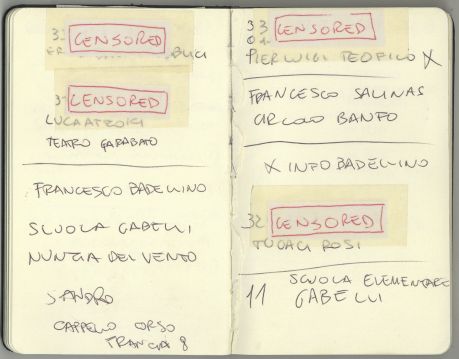 CENSORED
CENSORED
TEATRO GARABATO
FRANCESCO BADELLINO
SCUOLA GABELLI
NUNZIA DEL VENTO
SANDRO
CAPPELLO ORSO
TRANCIA 8
33 CENSORED
PIERLUIGI TEOFILO X
FRANCESCO SALINAS
CIRCOLO BANFO
X INFO BADELLINO
32 CENSORED
ROSI
11 SCUOLA ELEMENTARE
GABELLI